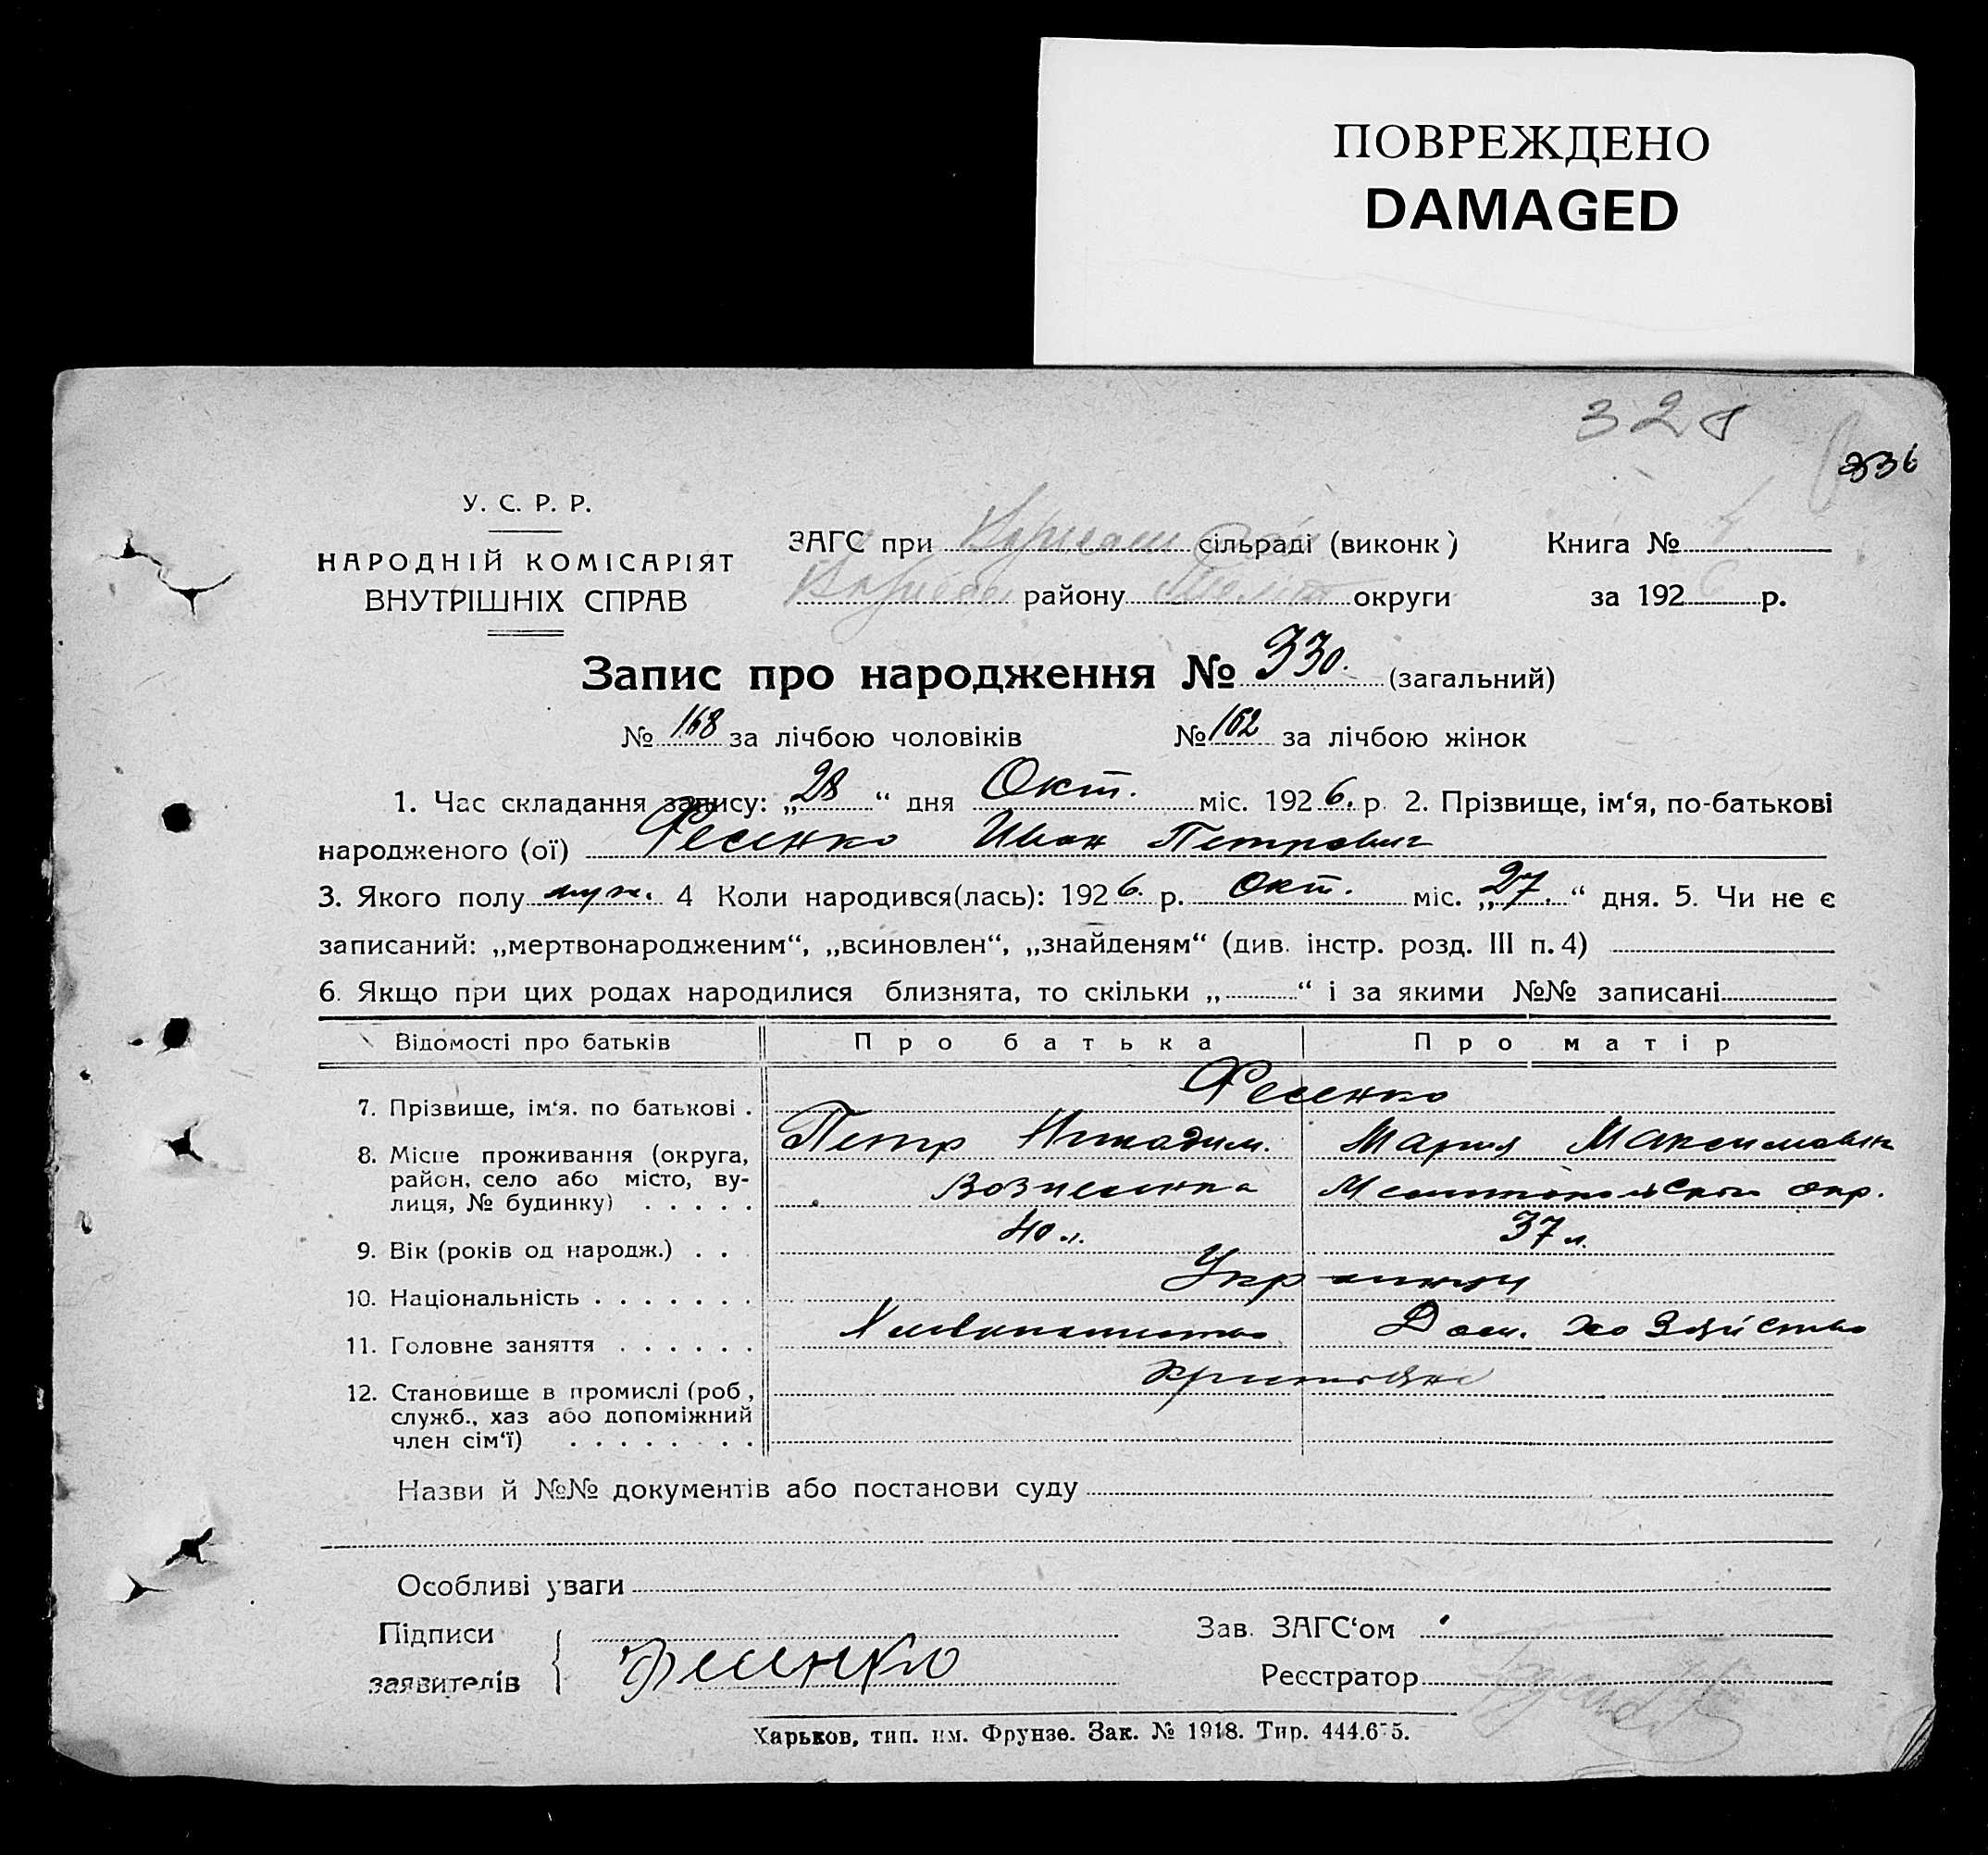 ПОВРЕЖДЕНО
DAMAGED
328
336
У. С. Р. Р.
НАРОДНІЙ КОМІСАРІЯТ
ВНУТРІШНІХ СПРАВ
ЗАГС при сільраді (виконк) Книга №
району округи за 1926 р.
Запис про народження № 330. (загальний)
№ 168 за лічбою чоловіків № 162 за лічбою жінок
1. Час складання запису: „28“ дня Окт. міс. 1926. р. 2. Прізвище, ім‘я, по-батькові
народженого (ої) Фесенко Иван Петрович
3. Якого полу муж. 4 Коли народився(лась): 1926. р. Окт. міс. „27.“ дня. 5. Чи не є
записаний: „мертвонародженим“, „всиновлен“, „знайденям“ (див. інстр. розд. III п. 4)
6. Якщо при цих родах народилися близнята, то скільки „ “ і за якими №№ записані
Відомості про батьків Про батька Про матір
Фесенко
7. Прізвище, ім‘я, по батькові .
Петр Мария Максимовн
8. Місце проживання (округа,
район, село або місто, ву-
лиця, № будинку) . . . . .
Вознесенка Мелитопольской окр.
9. Вік (років од народж.) . . 40 л. 37 л.
10. Національність . . . . . . . Украинцы
11. Головне заняття . . . . . . Хлебопашество Дом. хозяйство
12. Становище в промислі (роб,
служб., хаз або допоміжний
член сім‘ї) . . . . . . . .
Назви й №№ документів або постанови суду
Особливі уваги
Підписи Зав. ЗАГС‘ом
заявителів Фесенко Реєстратор
Харьков, тип. им. Фрунзе. Зак. № 1918. Тир. 444.675.